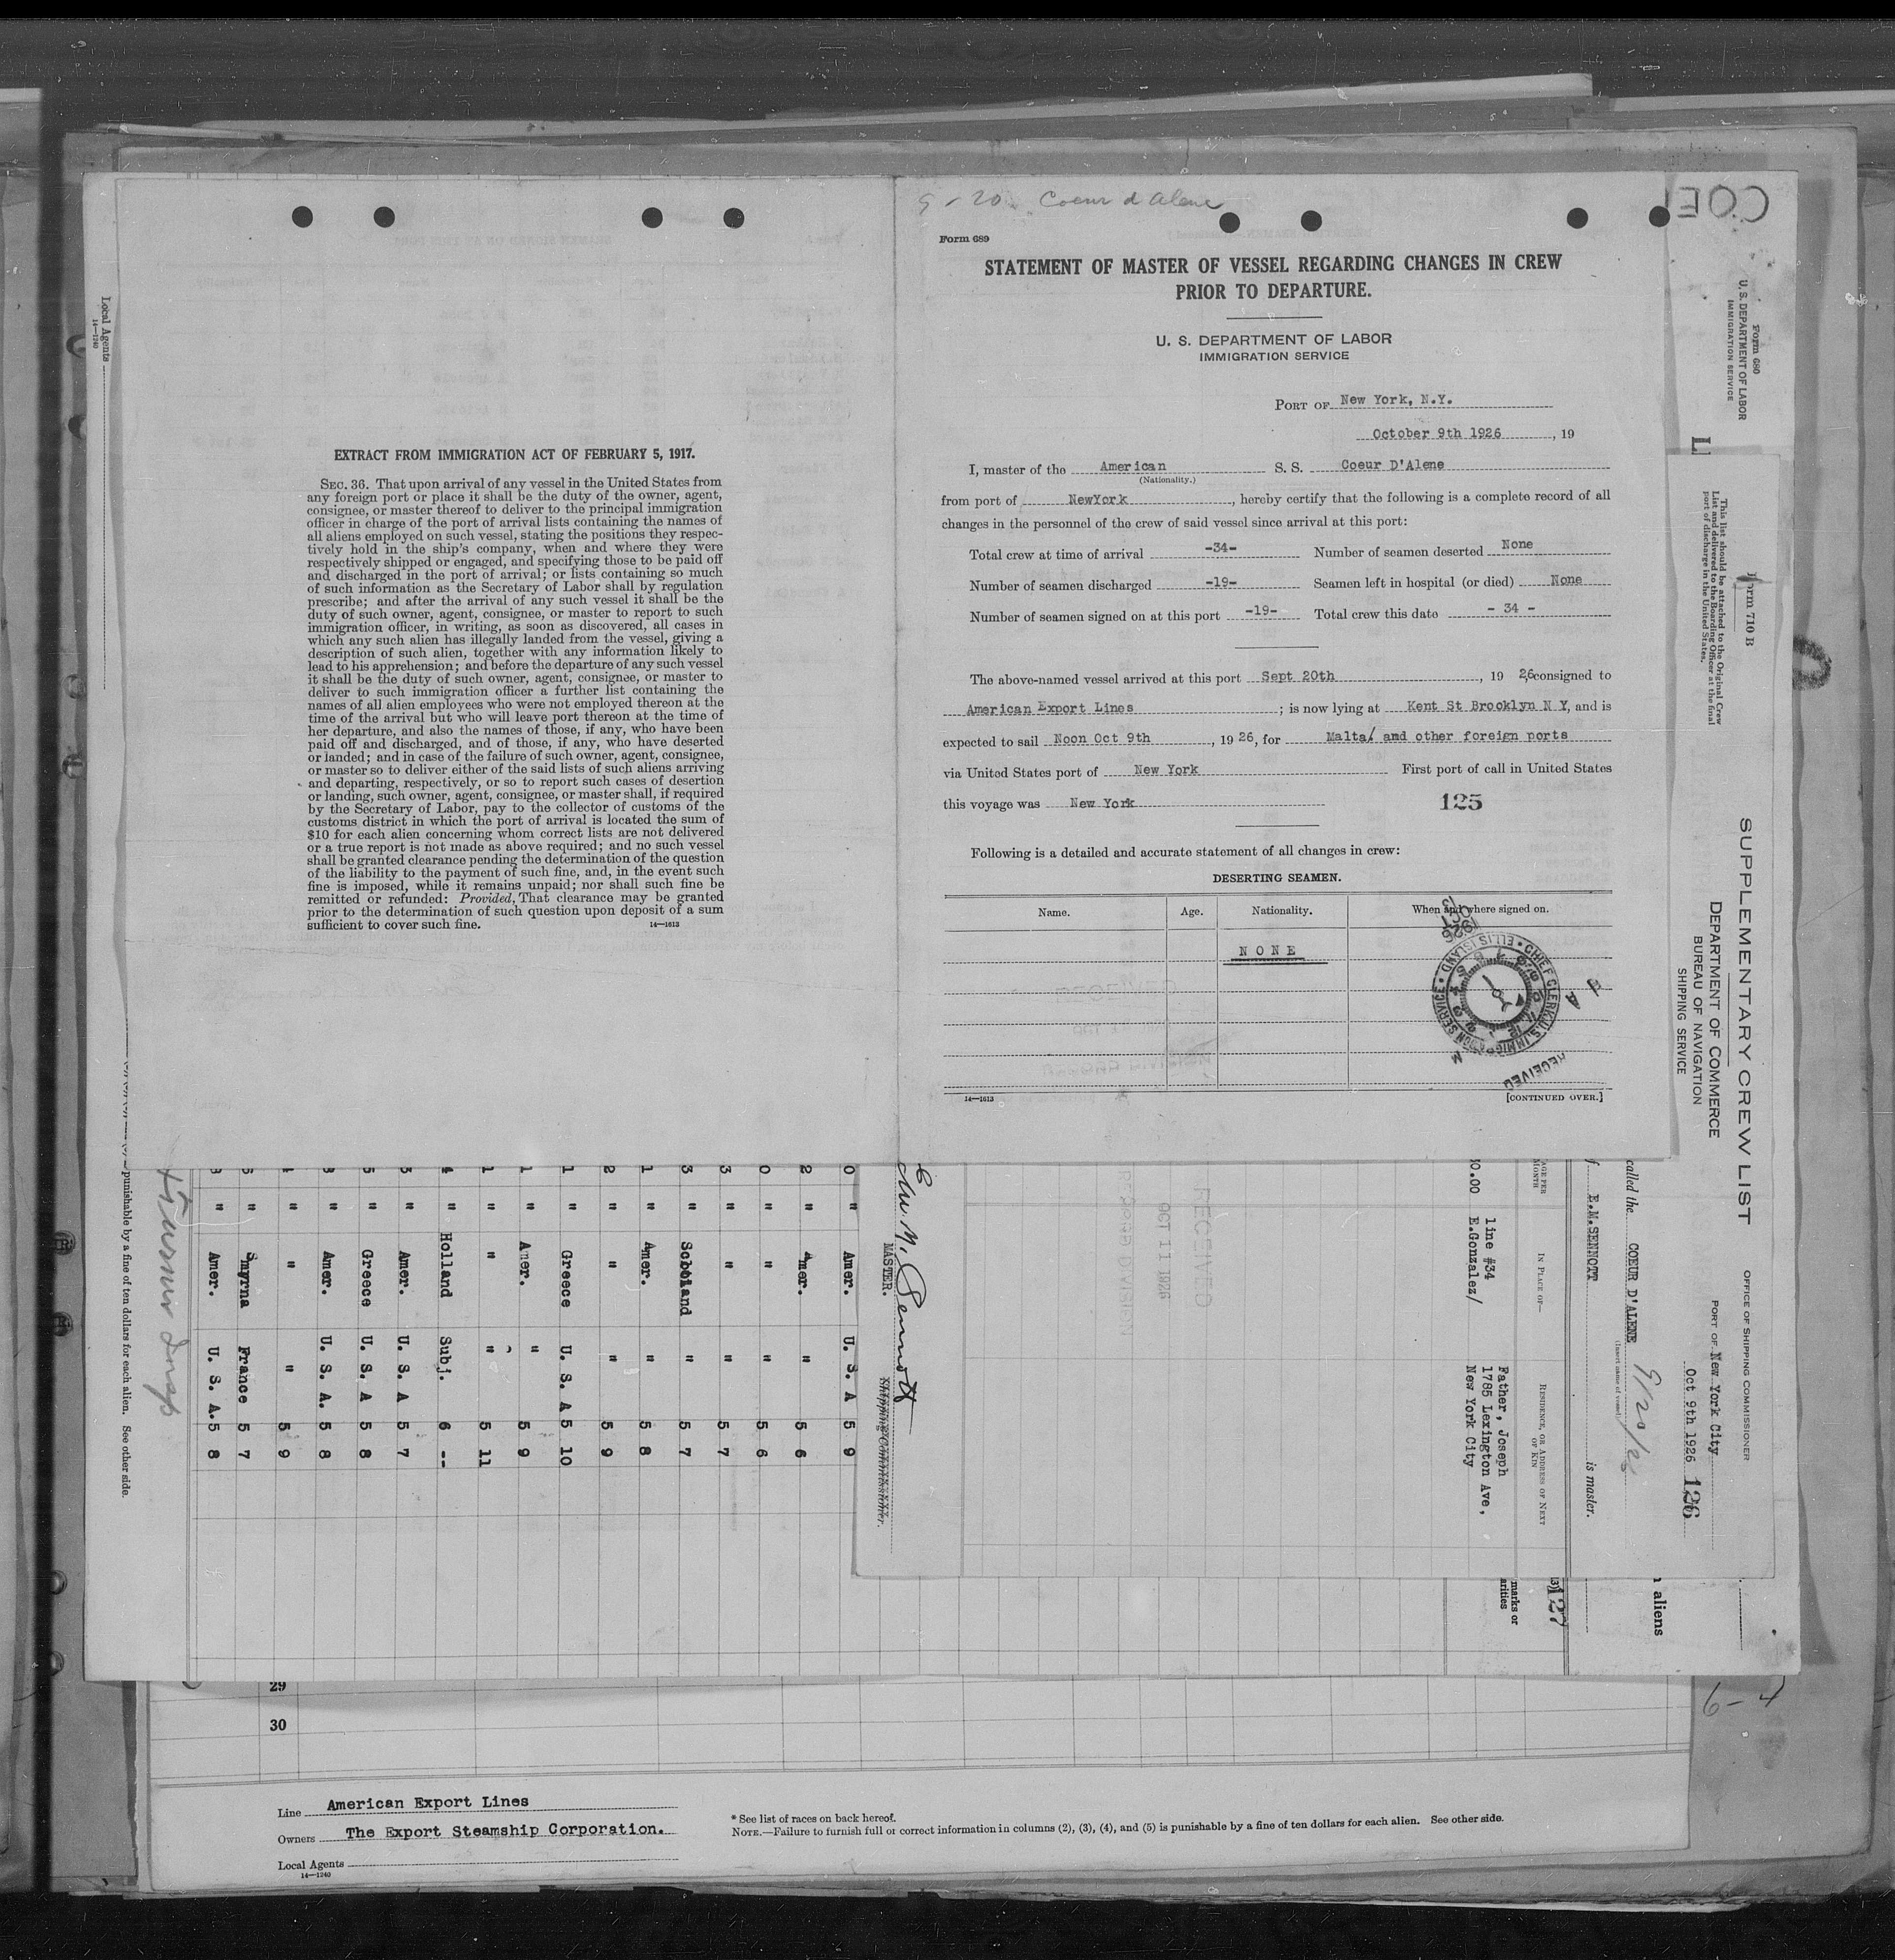 EXTRACT FROM IMMIGRATION ACT OF FEBRUARY 5, 1917.
SEC. 36. That upon arrival of any vessel in the United States from
any foreign port or place it shall be the duty of the owner, agent,
consignee, or master thereof to deliver to the principal immigration
officer in charge of the port of arrival lists containing the names of
all aliens employed on such vessel, stating the positions they respec-
tively hold in the ship's company, when and where they were
respectively shipped or engaged, and specifying those to be paid off
and discharged in the port of arrival; or lists containing so much
of such information as the Secretary of Labor shall by regulation
prescribe; and after the arrival of any such vessel it shall be the
duty of such owner, agent, consignee, or master to report to such
immigration officer, in writing, as soon as discovered, all cases in
which any such alien has illegally landed from the vessel, giving a
description of such alien, together with any information likely to
lead to his apprehension; and before the departure of any such vessel
it shall be the duty of such owner, agent, consignee, or master to
deliver to such immigration officer a further list containing the
names of all alien employees who were not employed thereon at the
time of the arrival but who will leave port thereon at the time of
her departure, and also the names of those, if any, who have been
paid off and discharged, and of those, if any, who have deserted
or landed; and in case of the failure of such owner, agent, consignee,
or master so to deliver either of the said lists of such aliens arriving
and departing, respectively, or so to report such cases of desertion
or landing, such owner, agent, consignee, or master shall, if required
by the Secretary of Labor, pay to the collector of customs of the
customs district in which the port of arrival is located the sum of
$10 for each alien concerning whom correct lists are not delivered
or a true report is not made as above required; and no such vessel
shall be granted clearance pending the determination of the question
of the liability to the payment of such fine, and, in the event such
fine is imposed, while it remains unpaid; nor shall such fine be
remitted or refunded: Provided, That clearance may be granted
prior to the determination of such question upon deposit of a sum
sufficient to cover such fine. 14—1613
9 - 20 Coeur d Alene
Form 689
STATEMENT OF MASTER OF VESSEL REGARDING CHANGES IN CREW
PRIOR TO DEPARTURE.
U. S. DEPARTMENT OF LABOR
IMMIGRATION SERVICE
PORT OF New York, N.Y.
October 9th 1926, 19
I, master of the American S. S. Coeur D'Alene
(Nationality.)
from port of NewYork, hereby certify that the following is a complete record of all
changes in the personnel of the crew of said vessel since arrival at this port:
Total crew at time of arrival -34- Number of seamen deserted None
Number of seamen discharged -19- Seamen left in hospital (or died) None
Number of seamen signed on at this port -19- Total crew this date - 34 -
The above-named vessel arrived at this port Sept 20th, 19 26, consigned to
American Export Lines; is now lying at Kent St Brooklyn N Y, and is
expected to sail Noon Oct 9th, 19 26, for Malta/ and other foreign ports
via United States port of New York First port of call in United States
this voyage was New York 125
Following is a detailed and accurate statement of all changes in crew:
DESERTING SEAMEN.
Name. Age. Nationality. When and where signed on.
NONE
CHIEF CLERK U.S. IMMIGRATION SERVICE • ELLIS ISLAND •
RECEIVED
14—1613 [CONTINUED OVER.]
COE
Form 680
U. S. DEPARTMENT OF LABOR
IMMIGRATION SERVICE
L
Form 710 B
This list should be attached to the Original Crew
List and delivered to the Boarding Officer at the final
port of discharge in the United States.
SUPPLEMENTARY CREW LIST
DEPARTMENT OF COMMERCE
BUREAU OF NAVIGATION
SHIPPING SERVICE
OFFICE OF SHIPPING COMMISSIONER
PORT OF New York City
Oct 9th 1926 126
called the COEUR D'ALENE 9/20/26
(Insert name of vessel)
f E.M.SENNOTT is master.
AGE PER MONTH IN PLACE OF— RESIDENCE, OR ADDRESS OF NEXT OF KIN
line #34 Father, Joseph
0.00 E.Gonzalez/ 1785 Lexington Ave,
New York City
RECEIVED
OCT 11 1926
RECORD DIVISION
E. M. Sennott
MASTER. Shipping Commissioner.
aliens
127
marks or
arities
0 " Amer. U. S. A 5 9
2 " Amer. " 5 6
0 " " " 5 6
3 " " " 5 7
3 " Scotland " 5 7
1 " Amer. " 5 8
2 " " " 5 9
1 " Greece U. S. A 5 10
1 " Amer. " 5 9
1 " " " 5 11
4 " Holland Subj. 6 --
3 " Amer. U. S. A 5 7
5 " Greece U. S. A 5 8
3 " Amer. U. S. A. 5 8
" " " 5 9
6 " Smyrna France 5 7
3 " Amer. U. S. A. 5 8
punishable by a fine of ten dollars for each alien. See other side.
Local Agents
14—1240
6-4
29
30
Line American Export Lines
Owners The Export Steamship Corporation.
Local Agents
14—1240
* See list of races on back hereof.
NOTE.—Failure to furnish full or correct information in columns (2), (3), (4), and (5) is punishable by a fine of ten dollars for each alien. See other side.